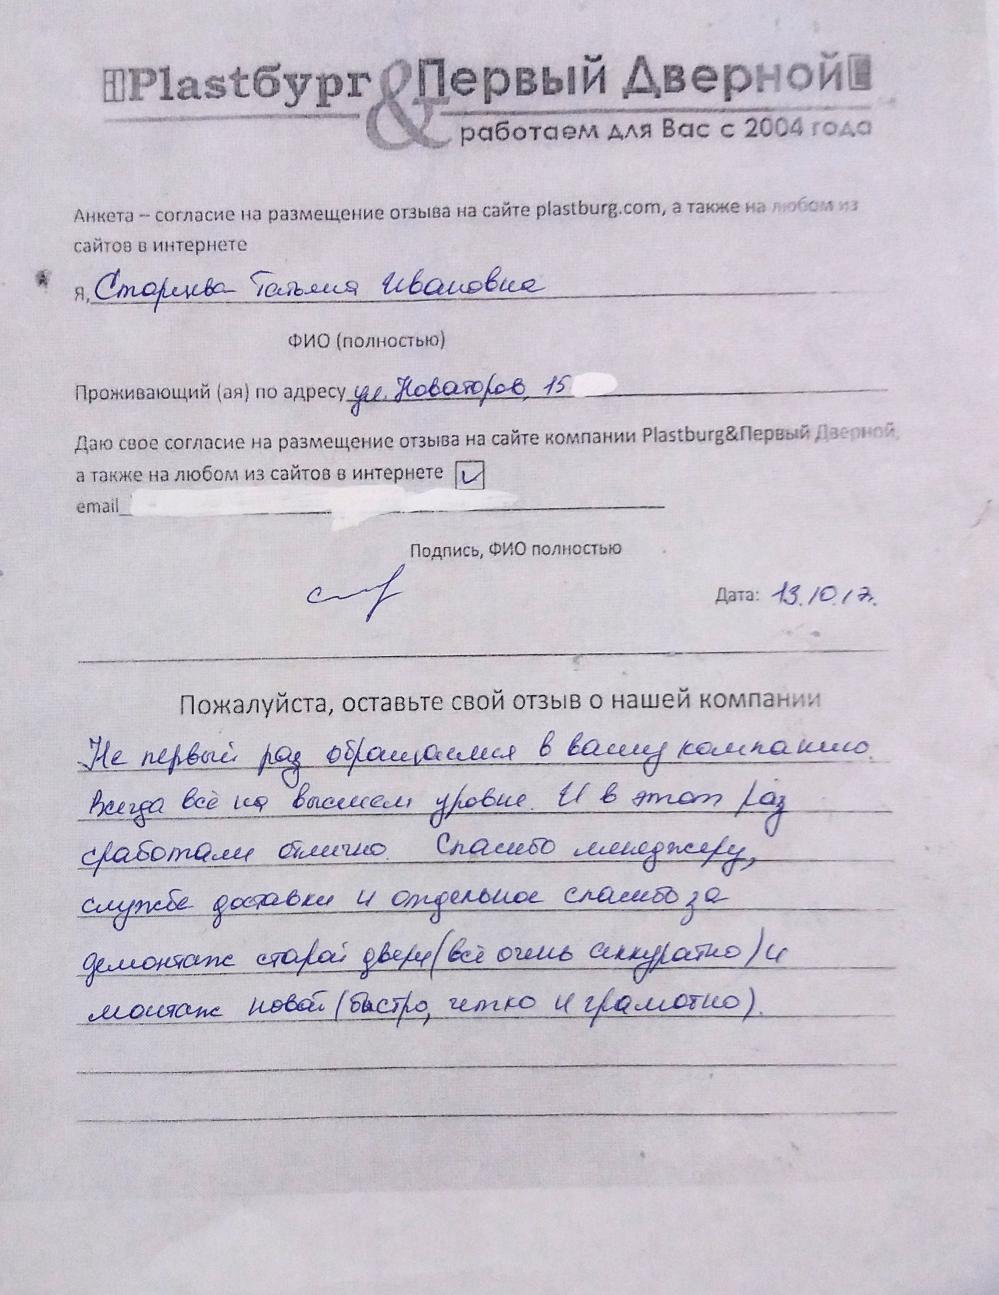 Plastбург & Первый Дверной
работаем для Вас с 2004 года
Анкета – согласие на размещение отзыва на сайте plastburg.com, а также на любом из
сайтов в интернете
Я, Старцева Татьяна Ивановна
ФИО (полностью)
Проживающий (ая) по адресу ул. Новаторов, 15
Даю свое согласие на размещение отзыва на сайте компании Plastburg&Первый Дверной,
а также на любом из сайтов в интернете
email
Подпись, ФИО полностью
Дата: 13.10.17.
Пожалуйста, оставьте свой отзыв о нашей компании
Не первый раз обращаемся в вашу компанию.
Всегда всё на высшем уровне. И в этот раз
сработали отлично. Спасибо менеджеру,
службе доставки и отдельное спасибо за
демонтаж старой двери (всё очень аккуратно) и
монтаж новой (быстро, четко и грамотно).